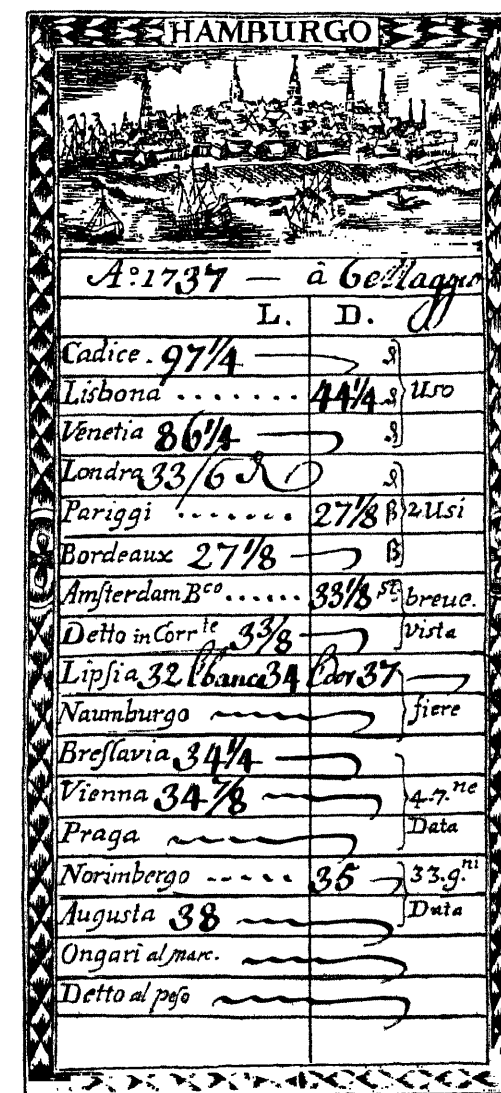 HAMBURGO
A.º 1737 — â 6 Maggio
L. D.
Cadice. 97 1/4
Lisbona ....... 44 1/4 Uso
Venetia 86 1/4
Londra 33/6
Pariggi ....... 27 1/8 ß 2 Usi
Bordeaux 27 1/8 ß
Amsterdam Bco ...... 33 1/8 st. breue.
Detto in Corrte 33/8 vista
Lipsia 32 34 37
Naumburgo fiere
Breslavia 34 1/4
Vienna 34 7/8 4.7.ne
Praga Data
Norimbergo ..... 35 33.g.ni
Augusta 38 Data
Ongari al marc.
Detto al peso